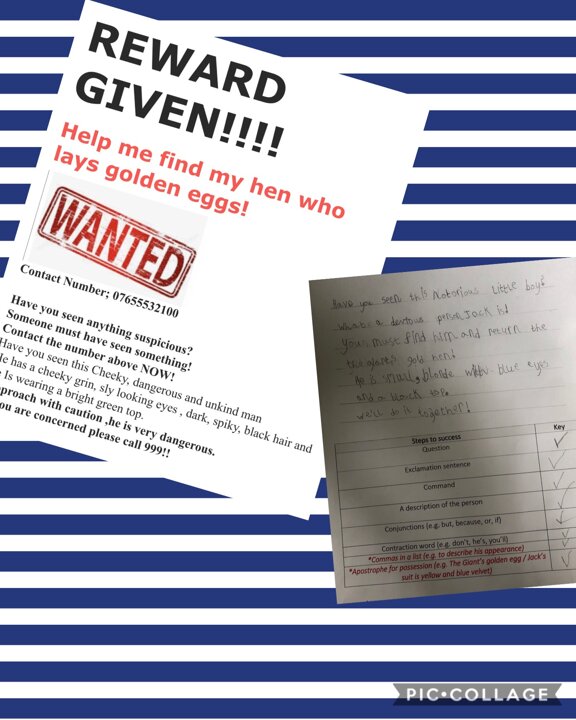 REWARD
GIVEN!!!!
Help me find my hen who
lays golden eggs!
WANTED
Contact Number; 07655532100
Have you seen anything suspicious?
Someone must have seen something!
Contact the number above NOW!
Have you seen this Cheeky, dangerous and unkind man
He has a cheeky grin, sly looking eyes , dark, spiky, black hair and
Is wearing a bright green top.
proach with caution ,he is very dangerous.
ou are concerned please call 999!!
Have you seen this Notorious Little boy?
what a devious person Jack is!
You must find him and return the
the giant's gold hen!
He is small, blonde with blue eyes
and a black top.
we'll do it together!
Steps to success
Key
Question
Exclamation sentence
Command
A description of the person
Conjunctions (e.g. but, because, or, if)
Contraction word (e.g. don't, he's, you'll)
*Commas in a list (e.g. to describe his appearance)
*Apostrophe for possession (e.g. The Giant's golden egg / Jack's
suit is yellow and blue velvet)
PIC•COLLAGE